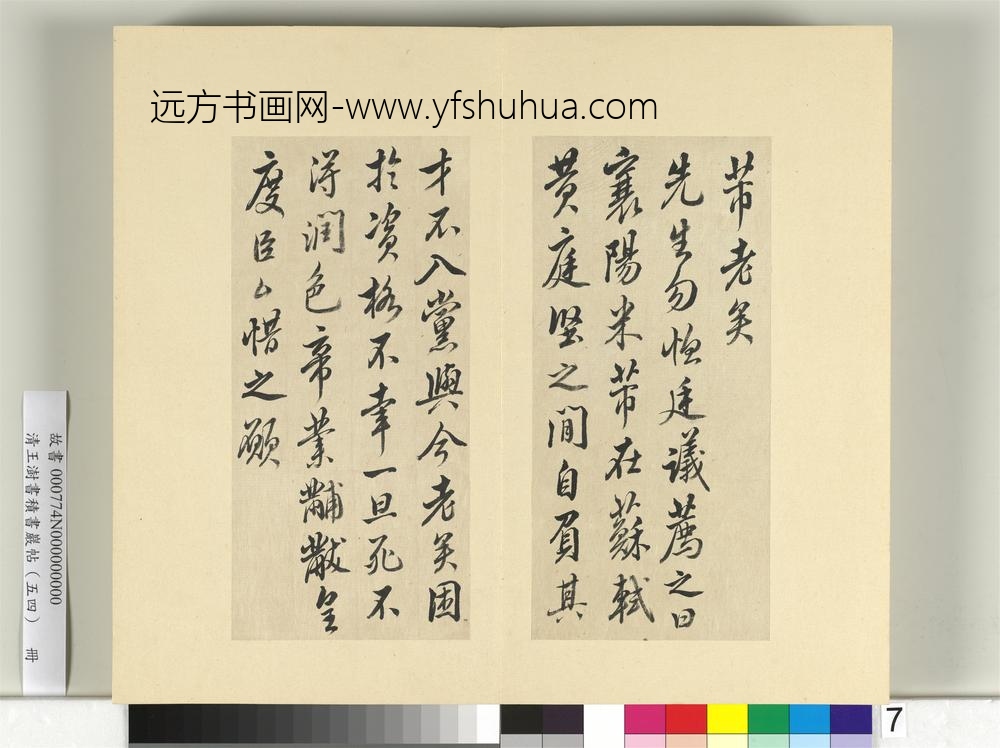 远方书画网-www.yfshuhua.com
芾老矣
先生勿恠廷議薦之曰
襄陽米芾在蘇軾
黄庭坚之間自負其
才不入黨與今老矣困
於資格不幸一旦死不
得潤色帝業黼黻皇
度臣亦惜之願
故書 000774N000000000
清王澍書積書巖帖（五四） 冊
7